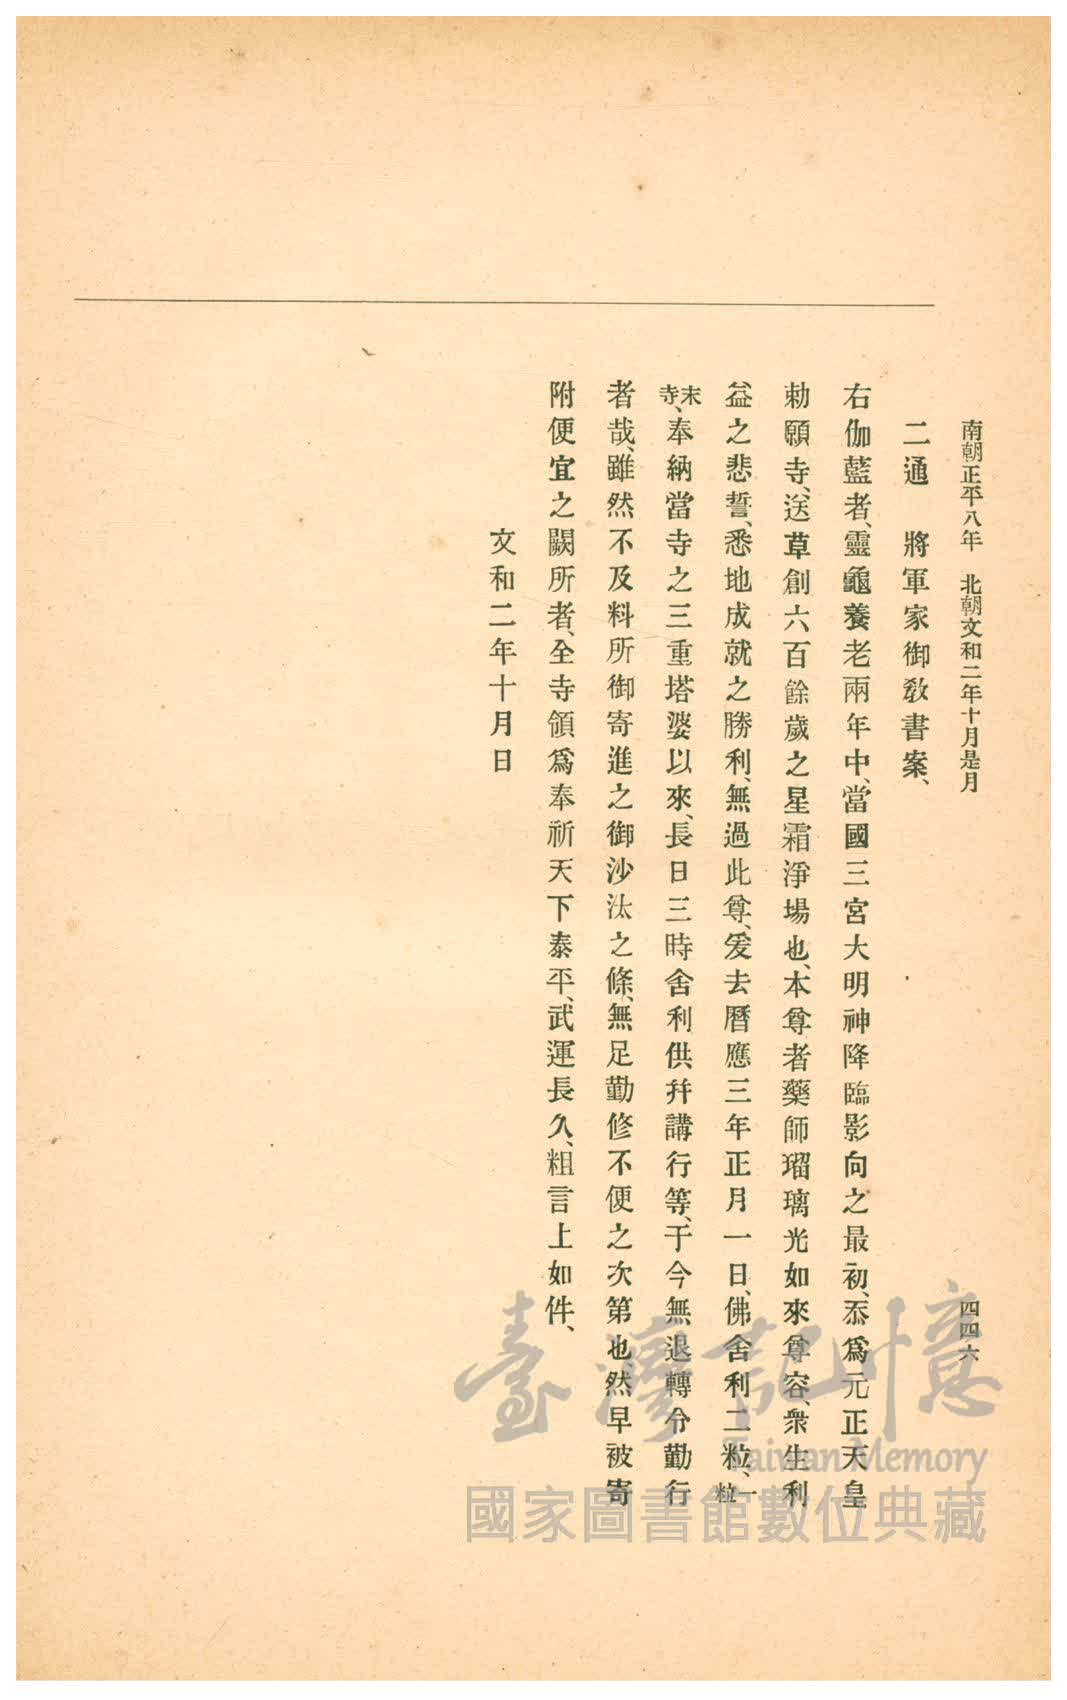 南朝正平八年　北朝文和二年十月是月
四四六
二通　將軍家御教書案、
右伽藍者、靈龜養老兩年中、當國三宮大明神降臨影向之最初、忝爲元正天皇
勅願寺、送草創六百餘歲之星霜淨場也、本尊者藥師瑠璃光如來尊容、衆生利
益之悲誓、悉地成就之勝利、無過此尊、爰去曆應三年正月一日、佛舍利二粒、一粒
末寺、奉納當寺之三重塔婆以來、長日三時舍利供幷講行等、于今無退轉令勤行
者哉、雖然不及料所御寄進之御沙汰之條、無足勤修不便之次第也、然早被寄
附便宜之闕所者、全寺領爲奉祈天下泰平、武運長久、粗言上如件、
文和二年十月日
臺灣記憶
Taiwan Memory
國家圖書館數位典藏